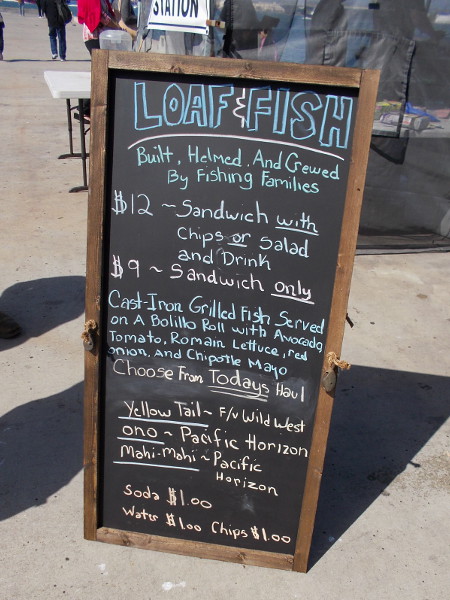 STATION
LOAF & FISH
Built, Helmed, And Crewed
By Fishing Families
$12 ~ Sandwich with
Chips or Salad
and Drink
$9 ~ Sandwich only
Cast-Iron Grilled Fish Served
on A Bolillo Roll with Avocado,
Tomato, Romain Lettuce, red
onion, And Chipotle Mayo
Choose From Todays Haul
Yellow Tail ~ F/V Wild West
ono ~ Pacific Horizon
Mahi-Mahi ~ Pacific
Horizon
Soda $1.00
Water $1.00 Chips $1.00